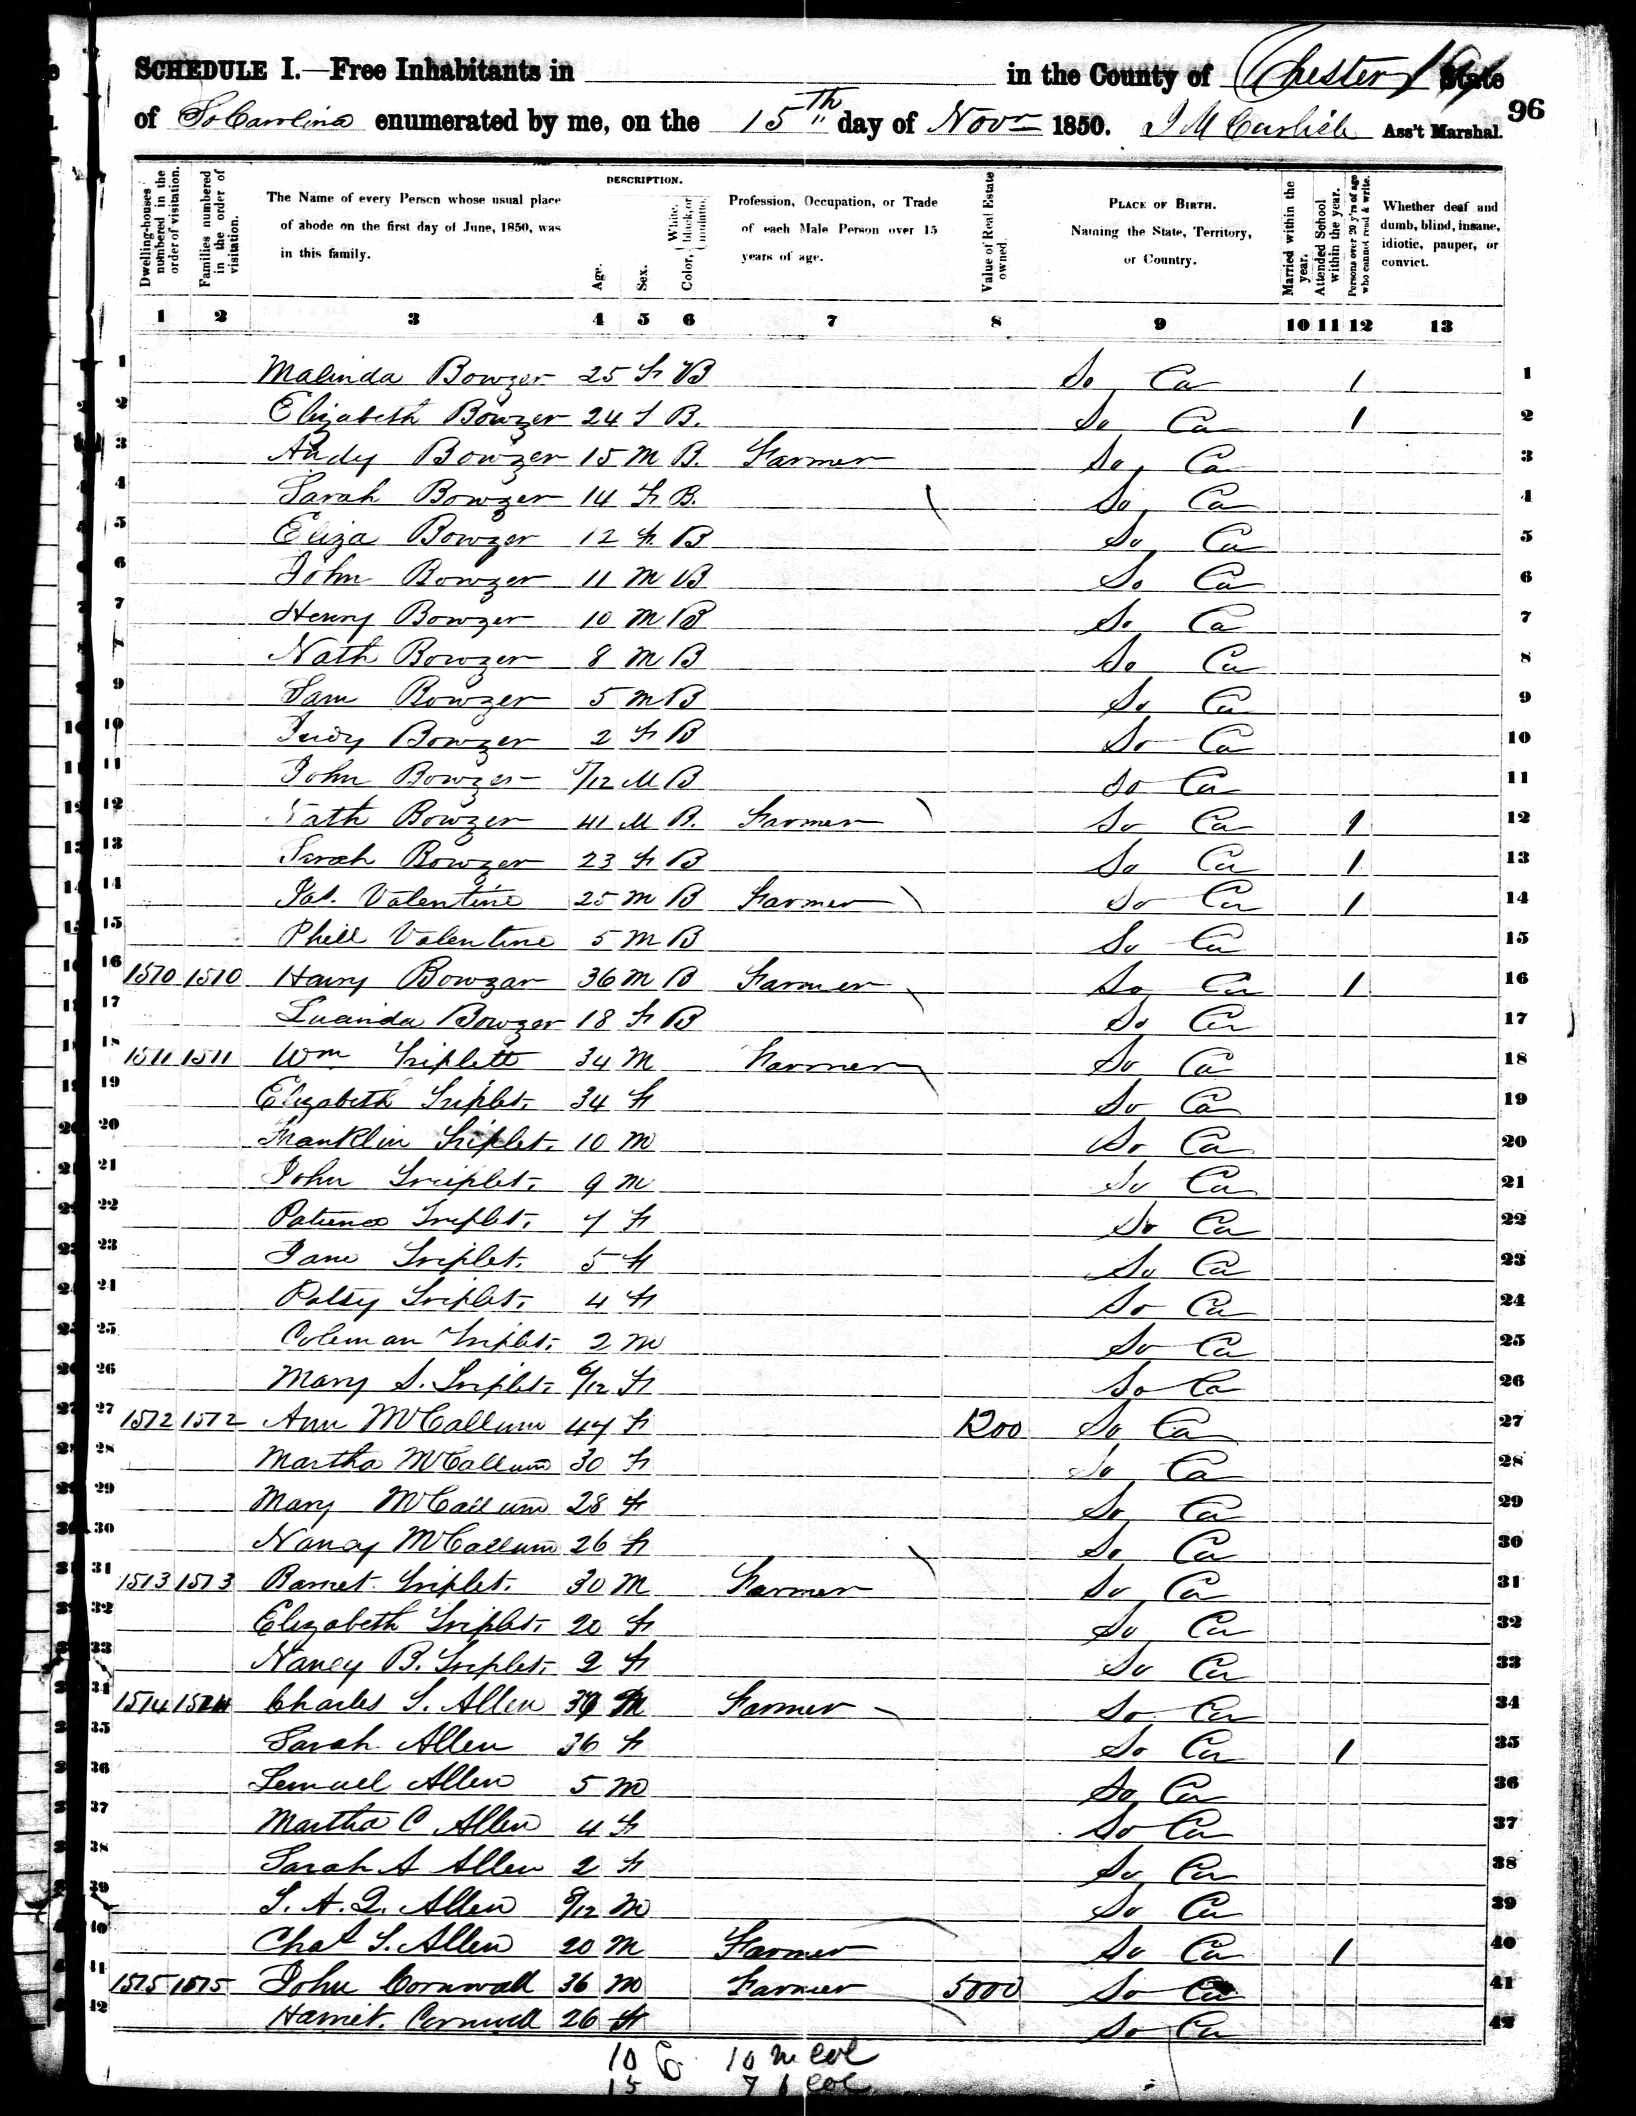 SCHEDULE I.—Free Inhabitants in in the County of Chester State
of So Carolina enumerated by me, on the 15th day of Novr 1850. J M Carlisle Ass't Marshal.
96
Dwelling-houses numbered in the order of visitation.
Families numbered in the order of visitation.
The Name of every Person whose usual place of abode on the first day of June, 1850, was in this family.
DESCRIPTION.
Age.
Sex.
Color, White, black, or mulatto.
Profession, Occupation, or Trade of each Male Person over 15 years of age.
Value of Real Estate owned.
PLACE OF BIRTH. Naming the State, Territory, or Country.
Married within the year.
Attended School within the year.
Persons over 20 y'rs of age who cannot read & write.
Whether deaf and dumb, blind, insane, idiotic, pauper, or convict.
1 2 3 4 5 6 7 8 9 10 11 12 13
1 Malinda Bowzer 25 F B So Ca 1 1
2 Elizabeth Bowzer 24 F B. So Ca 1 2
3 Andy Bowzer 15 M B. Farmer So Ca 3
4 Sarah Bowzer 14 F B. So Ca 4
5 Eliza Bowzer 12 F B So Ca 5
6 John Bowzer 11 M B So Ca 6
7 Henry Bowzer 10 M B So Ca 7
8 Nath Bowzer 8 M B So Ca 8
9 Sam Bowzer 5 M B So Ca 9
10 Judy Bowzer 2 F B So Ca 10
11 John Bowzer /12 M B So Ca 11
12 Nath Bowzer 41 M B. Farmer So Ca 1 12
13 Sarah Bowzer 23 F B So Ca 1 13
14 Jas. Valentine 25 M B Farmer So Ca 1 14
15 Phill Valentine 5 M B So Ca 15
16 1510 1510 Harry Bowzar 36 M B Farmer So Ca 1 16
17 Lucinda Bowzer 18 F B So Ca 17
18 1511 1511 Wm Triplett 34 M Farmer So Ca 18
19 Elizabeth Triplet. 34 F So Ca 19
20 Franklin Triplet. 10 M So Ca 20
21 John Triplet. 9 M So Ca 21
22 Patience Triplet. 7 F So Ca 22
23 Jane Triplet. 5 F So Ca 23
24 Patsy Triplet. 4 F So Ca 24
25 Coleman Triplet. 2 M So Ca 25
26 Mary S. Triplet. 6/12 F So Ca 26
27 1512 1512 Ann McCallum 47 F 1200 So Ca 27
28 Martha McCallum 30 F So Ca 28
29 Mary McCallum 28 F So Ca 29
30 Nancy McCallum 26 F So Ca 30
31 1513 1513 Barnet Triplet. 30 M Farmer So Ca 31
32 Elizabeth Triplet. 20 F So Ca 32
33 Nancy B. Triplet. 2 F So Ca 33
34 1514 1514 Charles S. Allen M Farmer So Ca 34
35 Sarah Allen 36 F So Ca 1 35
36 Lemuel Allen 5 M So Ca 36
37 Martha C Allen 4 F So Ca 37
38 Sarah A Allen 2 F So Ca 38
39 Allen /12 M So Ca 39
40 Chas S. Allen 20 M Farmer So Ca 1 40
41 1515 1515 John Cornwall 36 M Farmer 5000 So Ca 41
42 Harriet. Cornwell 26 F So Ca 42
10 6 10 m col
15 7 f col